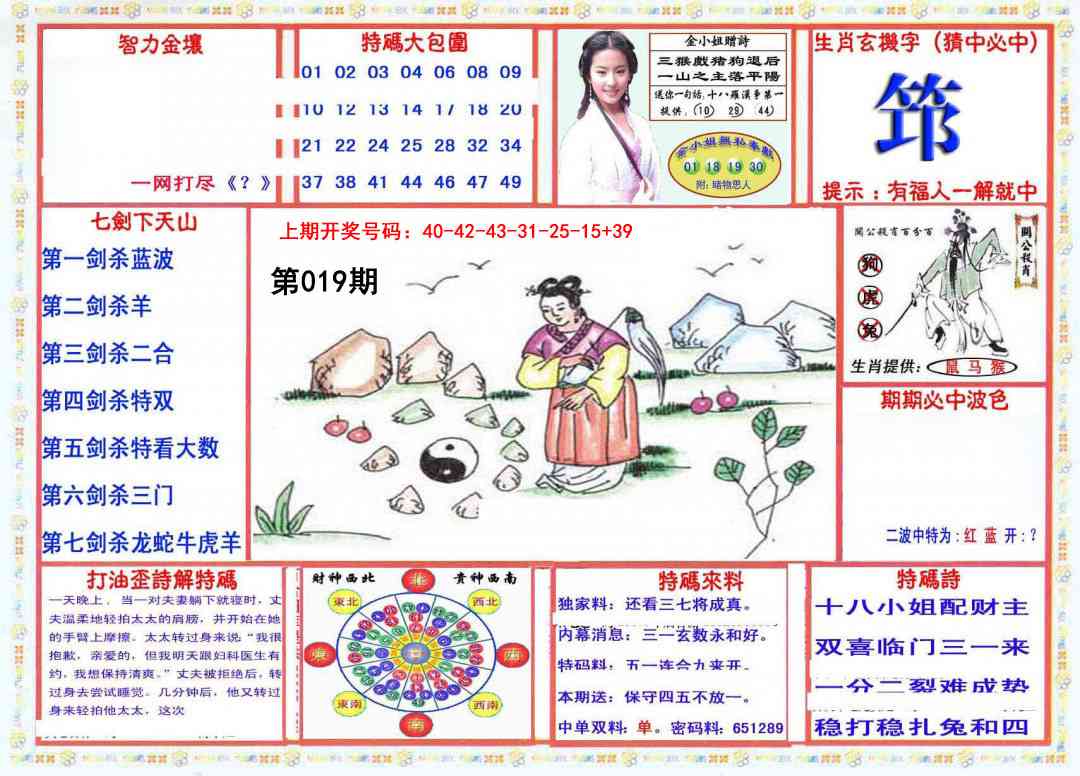 智力金壤
一网打尽《？》
特碼大包圍
01 02 03 04 06 08 09
10 12 13 14 17 18 20
21 22 24 25 28 32 34
37 38 41 44 46 47 49
金小姐贈詩
三猴戲猪狗退后
一山之主落平陽
送你一句話,十八羅漢爭第一
提供,(10 29 44)
金小姐無私奉獻
01 18 19 30
附:睹物思人
生肖玄機字（猜中必中）
筇
提示：有福人一解就中
七劍下天山
第一剑杀蓝波
第二剑杀羊
第三剑杀二合
第四剑杀特双
第五剑杀特看大数
第六剑杀三门
第七剑杀龙蛇牛虎羊
上期开奖号码：40-42-43-31-25-15+39
第019期
關公殺肖百分百
關公殺肖
狗
虎
兔
生肖提供:鼠 马 猴
期期必中波色
二波中特为:红 蓝 开:？
打油歪詩解特碼
一天晚上，当一对夫妻躺下就寝时，丈
夫温柔地轻拍太太的肩膀，并开始在她
的手臂上摩擦。太太转过身来说“我很
抱歉，亲爱的，但我明天跟妇科医生有
约，我想保持清爽。”丈夫被拒绝后，转
过身去尝试睡觉。几分钟后，他又转过
身来轻拍他太太，这次
財神西北
貴神西南
北
東北
西北
東
西
東南
西南
南
特碼來料
独家料：还看三七将成真。
内幕消息：三一玄数永和好。
特码料：五一连合九来开。
本期送：保守四五不放一。
中单双料：单。密码料：651289
特碼詩
十八小姐配财主
双喜临门三一来
一分二裂难成势
稳打稳扎兔和四